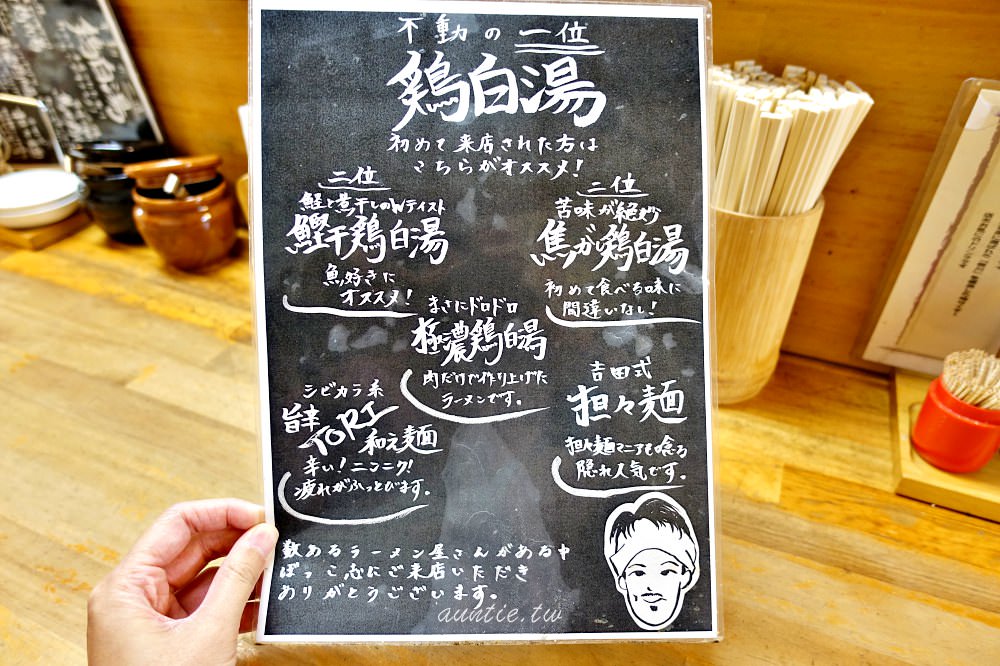 不動の一位
鶏白湯
初めて来店された方は
こちらがオススメ!
二位
鰹と煮干しのWテイスト
鰹干鶏白湯
魚好きに
オススメ!
二位
苦味が絶妙
焦がし鶏白湯
初めて食べる味に
間違いなし!
まさにドロドロ
極濃鶏白湯
肉だけで作り上げた
ラーメンです。
シビカラ系
旨辛
TORI
和え麺
辛い!ニンニク!
疲れがふっとびます。
吉田式
担々麺
担々麺マニアも唸る
隠れ人気です。
数あるラーメン屋さんがある中
ぼっこ志にご来店いただき
ありがとうございます。
auntie.tw